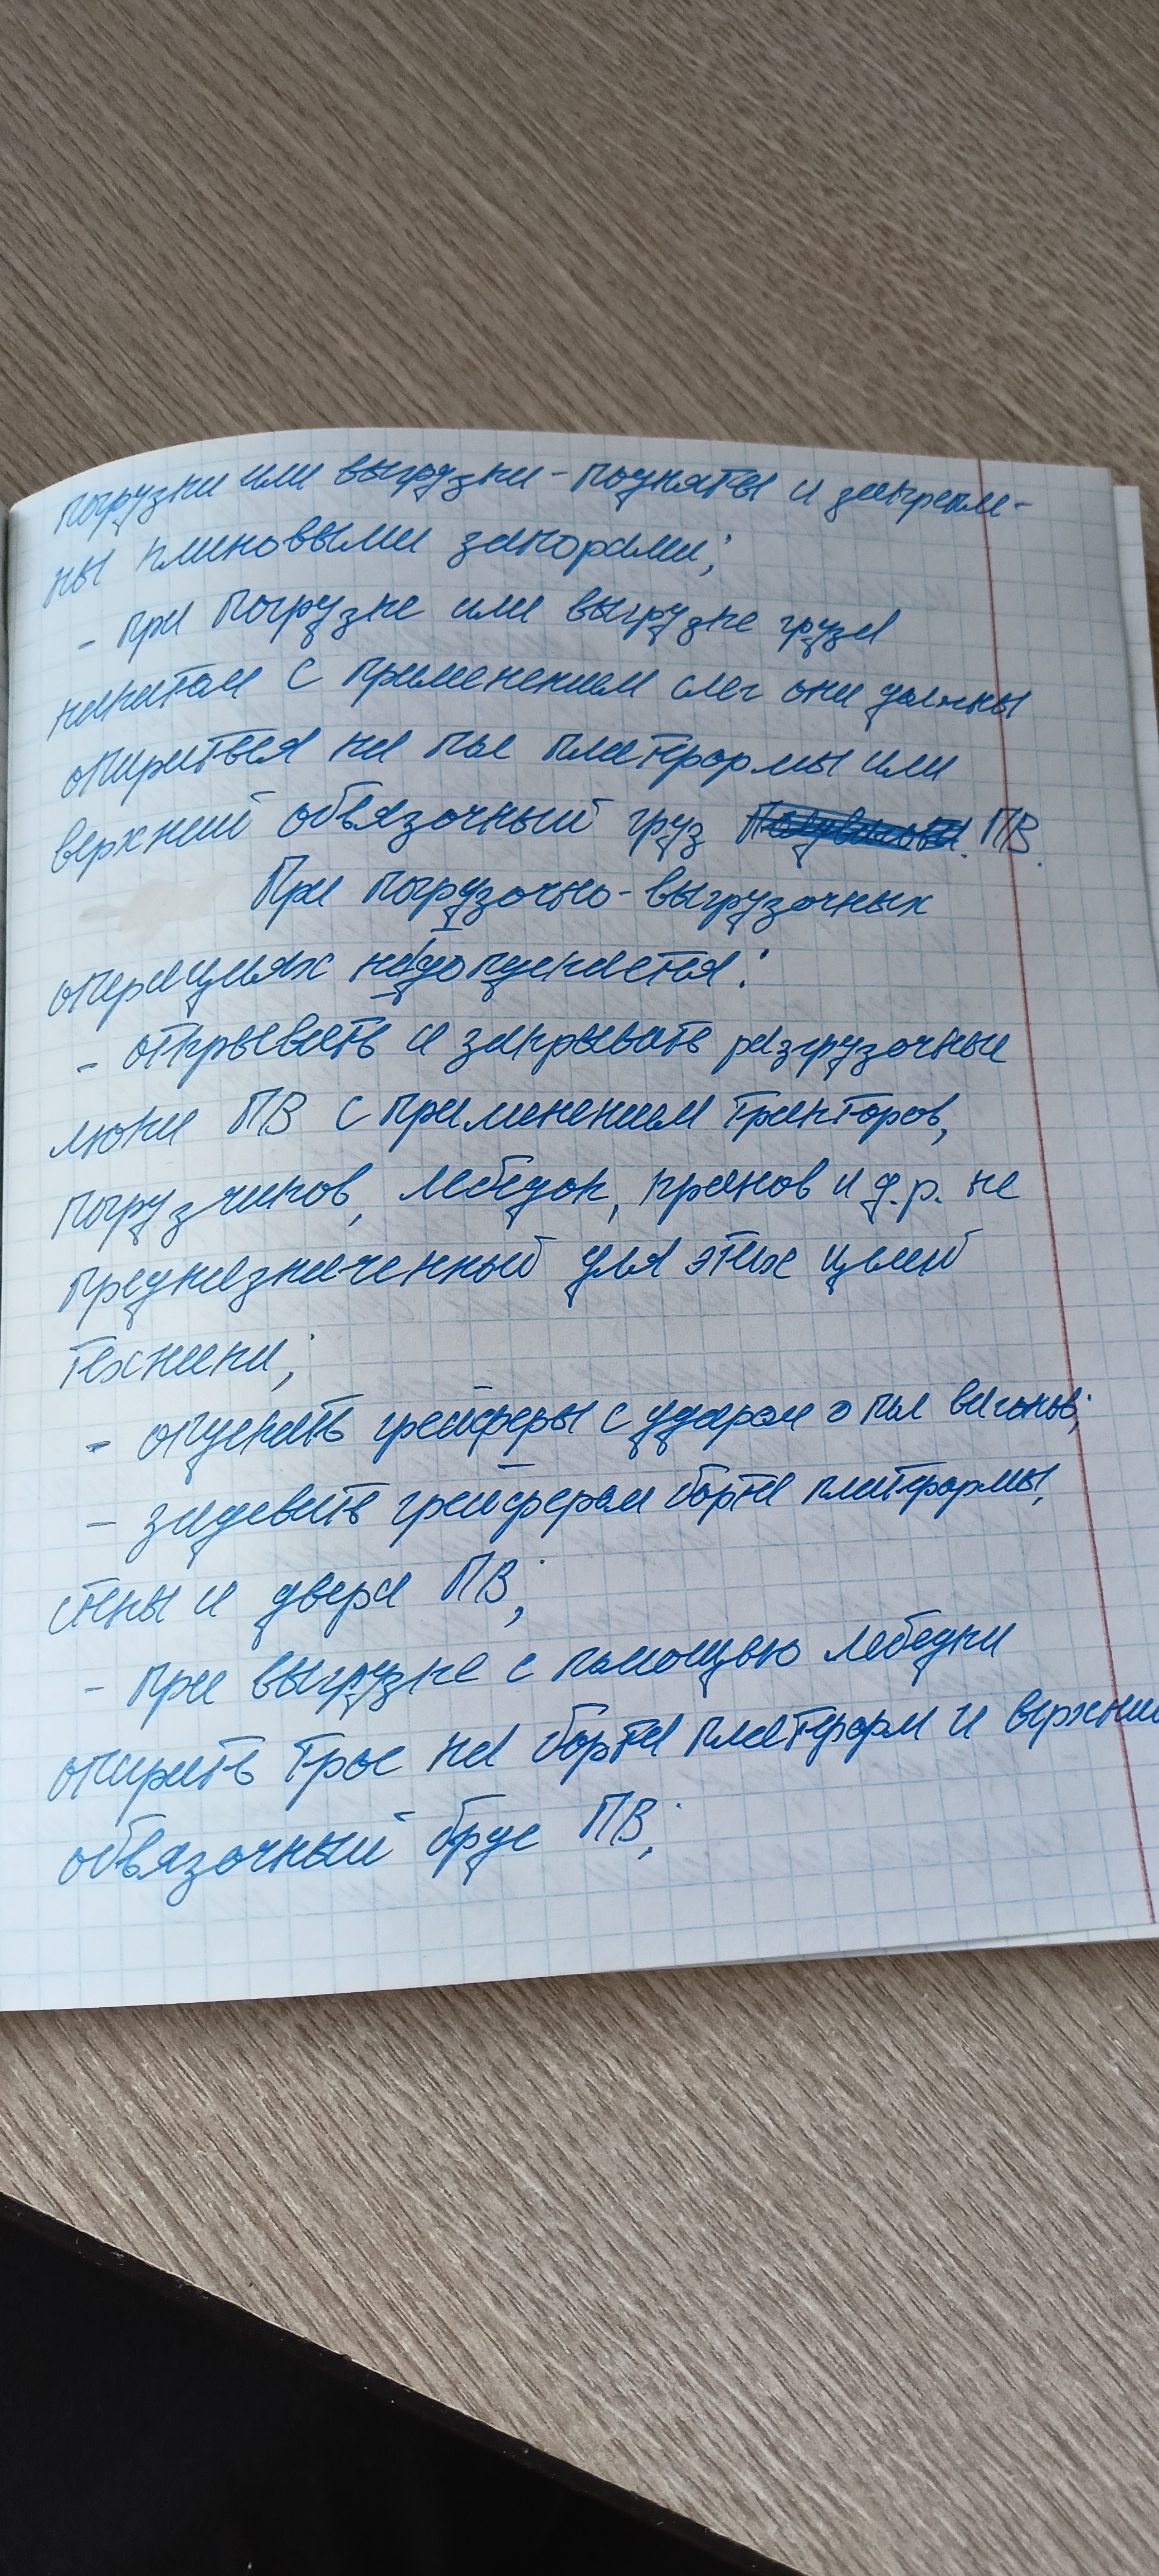 погрузки или выгрузки - подняты и закрепле-
ны клиновыми запорами;
- при погрузке или выгрузке груза
накатом с применением слег они должны
опираться на пол платформы или
верхний обвязочный груз ПВ.
При погрузочно-выгрузочных
операциях не допускается:
- открывать и закрывать разгрузочные
люки ПВ с применением тракторов,
погрузчиков, лебедок, кранов и д.р. не
предназначенной для этих целей
техники;
- опускать грейферы с ударом о пол вагонов;
- задевать грейфером борта платформы,
стены и двери ПВ;
- при выгрузке с помощью лебедки
опирать трос на борта платформ и верхний
обвязочный брус ПВ;